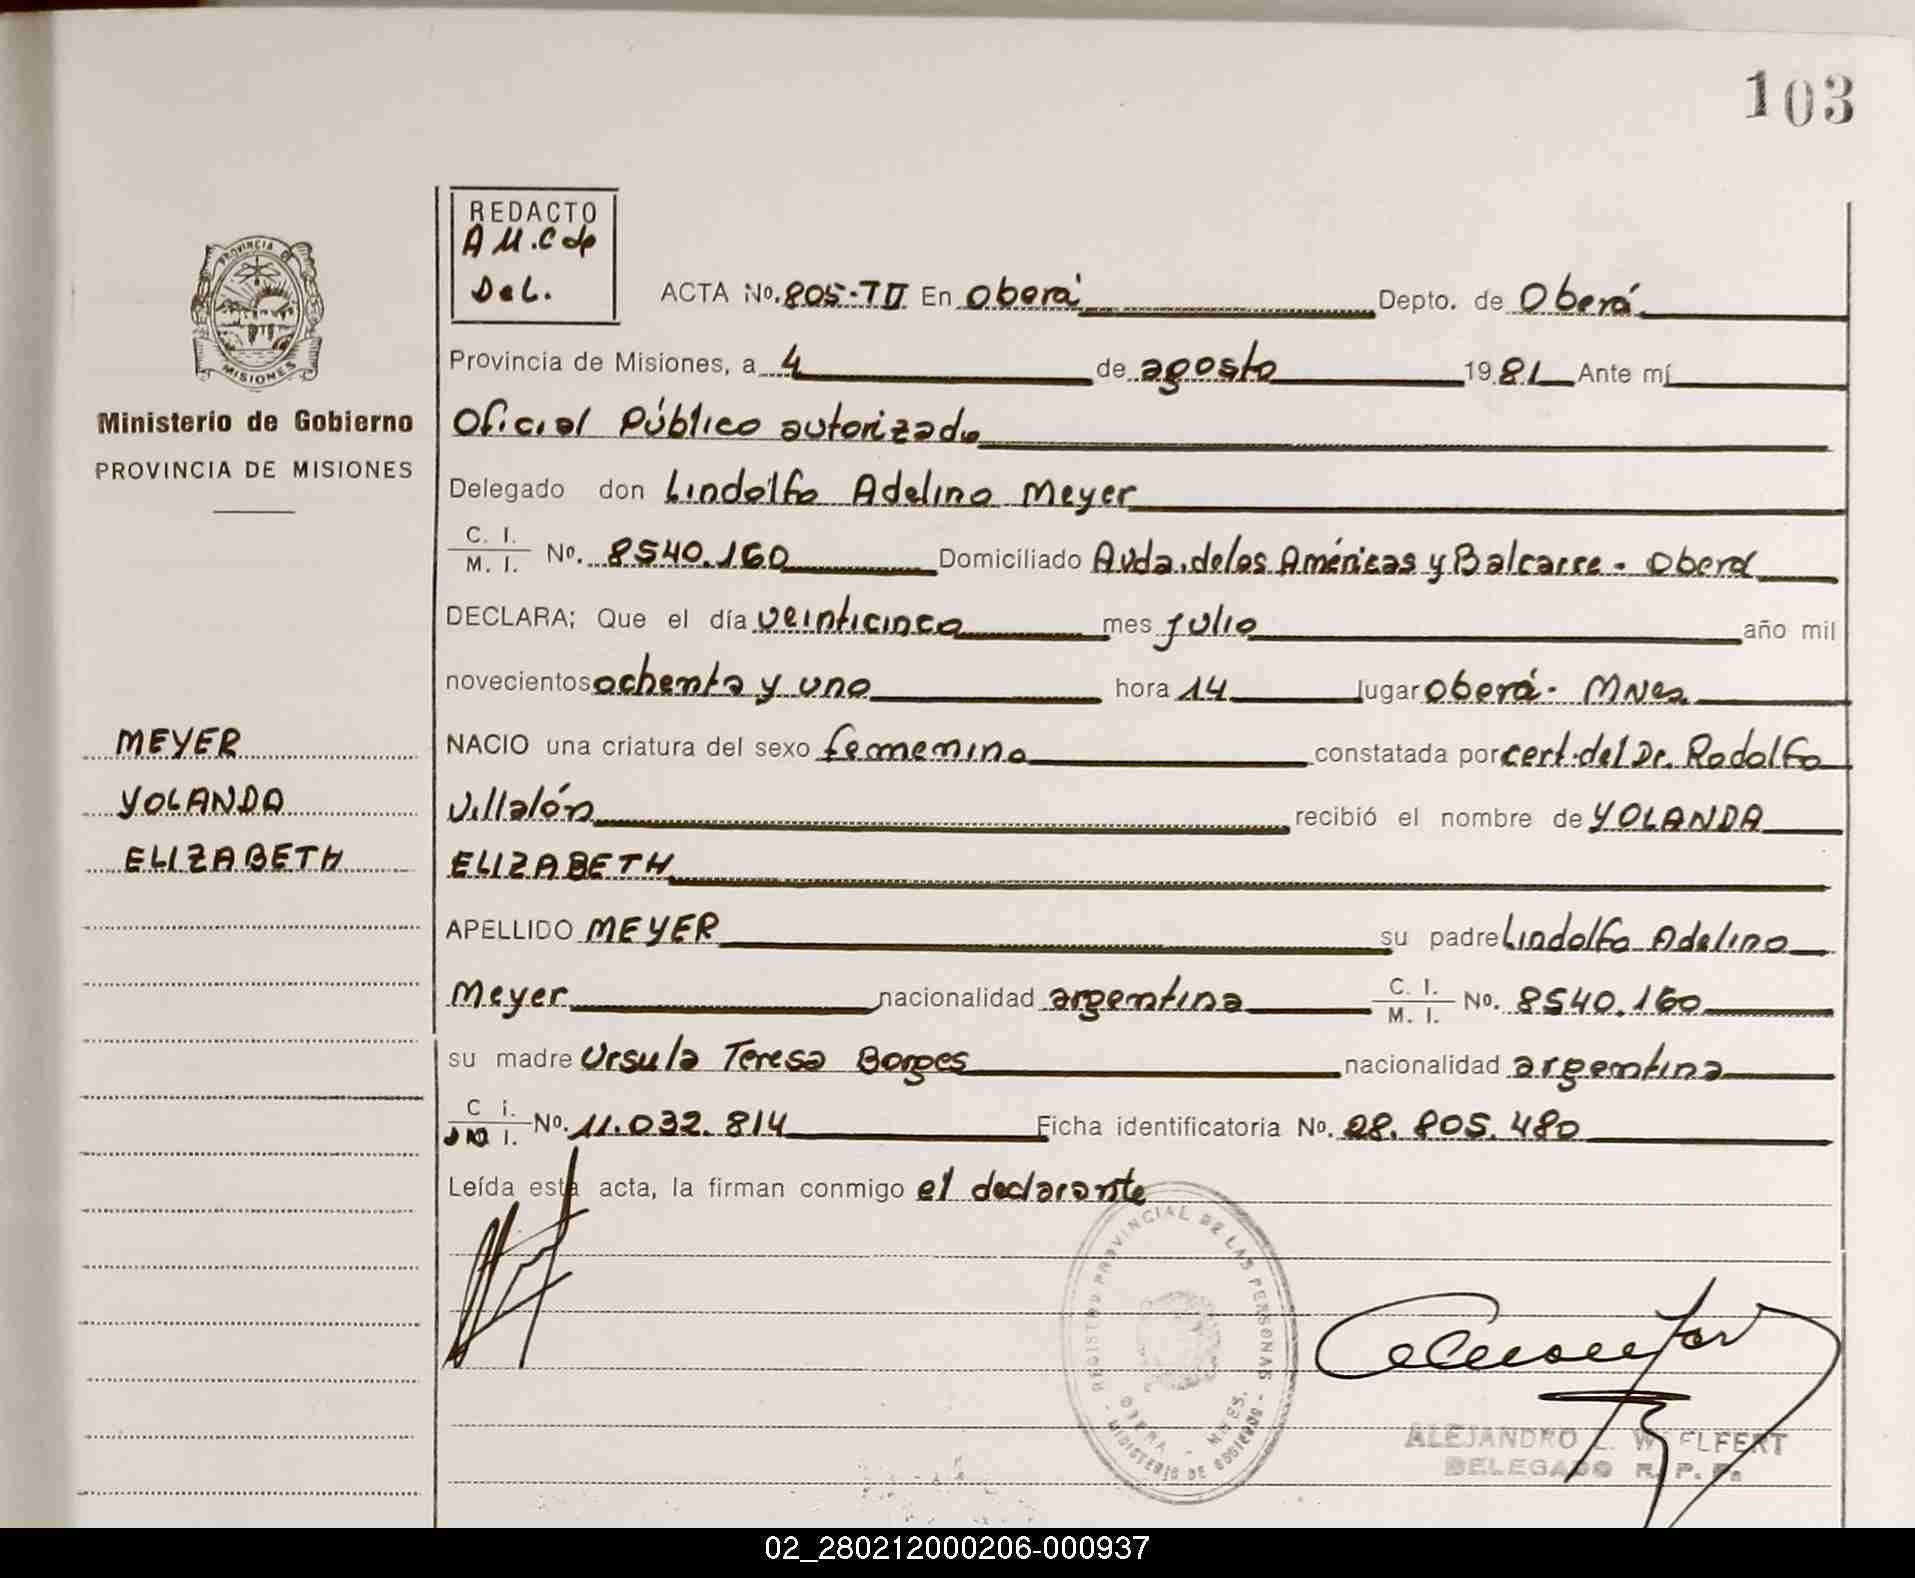 103
REDACTO
A M.C de
Del.
ACTA No. 805-TII En Oberá Depto. de Oberá
PROVINCIA DE
MISIONES
Provincia de Misiones, a 4 de agosto 1981 Ante mí
Ministerio de Gobierno
PROVINCIA DE MISIONES
Oficial Público autorizado
Delegado don Lindolfo Adelino Meyer
C. I. / M. I. No. 8540.160 Domiciliado Avda. de las Américas y Balcarce - Oberá
DECLARA; Que el día veinticinco mes julio año mil
novecientos ochenta y uno hora 14 lugar Oberá - MNes.
MEYER
YOLANDA
ELIZABETH
NACIO una criatura del sexo femenino constatada por cert. del Dr. Rodolfo
Villalón recibió el nombre de YOLANDA
ELIZABETH
APELLIDO MEYER su padre Lindolfo Adelino
Meyer nacionalidad argentina C. I. / M. I. No. 8540.160
su madre Ursula Teresa Borges nacionalidad argentina
C i. / I. No. 11.032.814 Ficha identificatoria No. 28.805.480
Leída esta acta, la firman conmigo el declarante
REGISTRO PROVINCIAL DE LAS PERSONAS
OBERA - MNES.
MINISTERIO DE GOBIERNO
ALEJANDRO L. WELFERT
DELEGADO R. P. P.
02_280212000206-000937